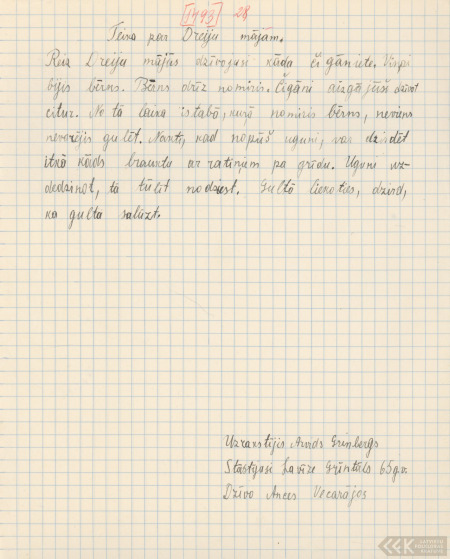 1493 28
Teika par Dreiju mājām.
Reiz Dreiju mājās dzīvojusi kāda čigāniete. Viņai
bijis bērns. Bērns drīz nomiris. Čigāni aizgājuši dzīvot
citur. No tā laika istabā, kurā nomiris bērns, neviens
nevarējis gulēt. Naktī, kad nopūš uguni, var dzirdēt
itkā kāds brauktu ar ratiņam pa grīdu. Uguni uz-
dedzinot, tā tūlīt nodziest. Gultā liekoties, dzird,
ka gulta salūzt.
Uzrakstījis Arvīds Grīnbergs
Stāstījusi Lavīze Grīntāls 65 g.v.
Dzīvo Ances Vecarājos